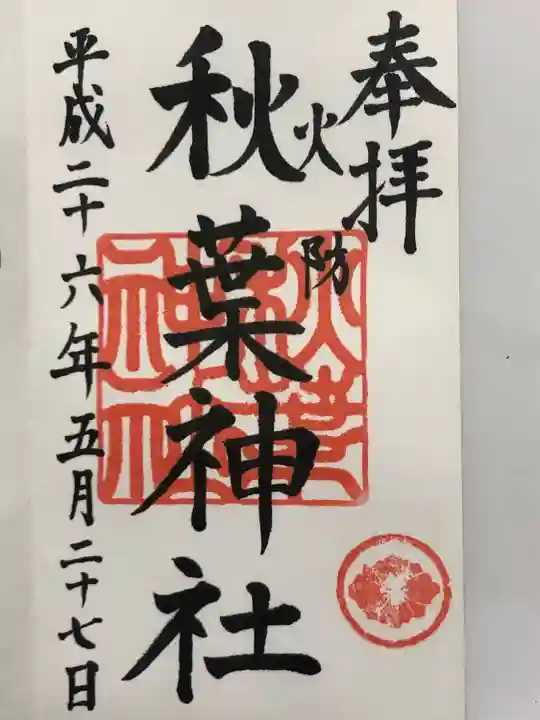 奉拝
火防
秋葉神社
平成二十六年五月二十七日